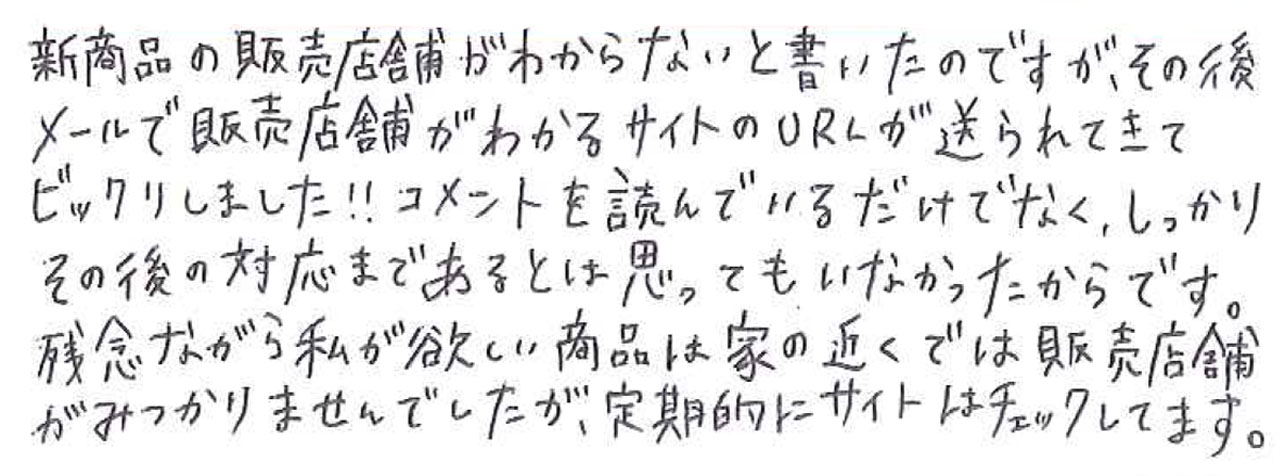 新商品の販売店舗がわからないと書いたのですが、その後
メールで販売店舗がわかるサイトのURLが送られてきて
ビックリしました!! コメントを読んでいるだけでなく、しっかり
その後の対応まであるとは思ってもいなかったからです。
残念ながら私が欲しい商品は家の近くでは販売店舗
がみつかりませんでしたが、定期的にサイトはチェックしてます。